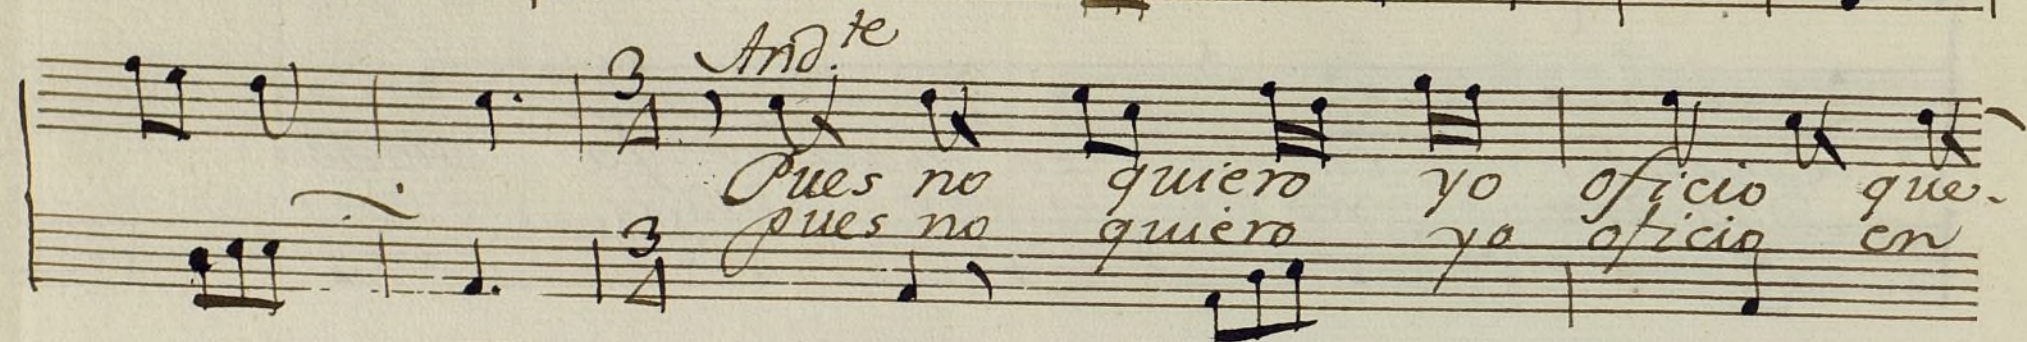 And.te
3
4
Pues no quiero yo oficio que-
pues no quiero yo oficio en
3
4